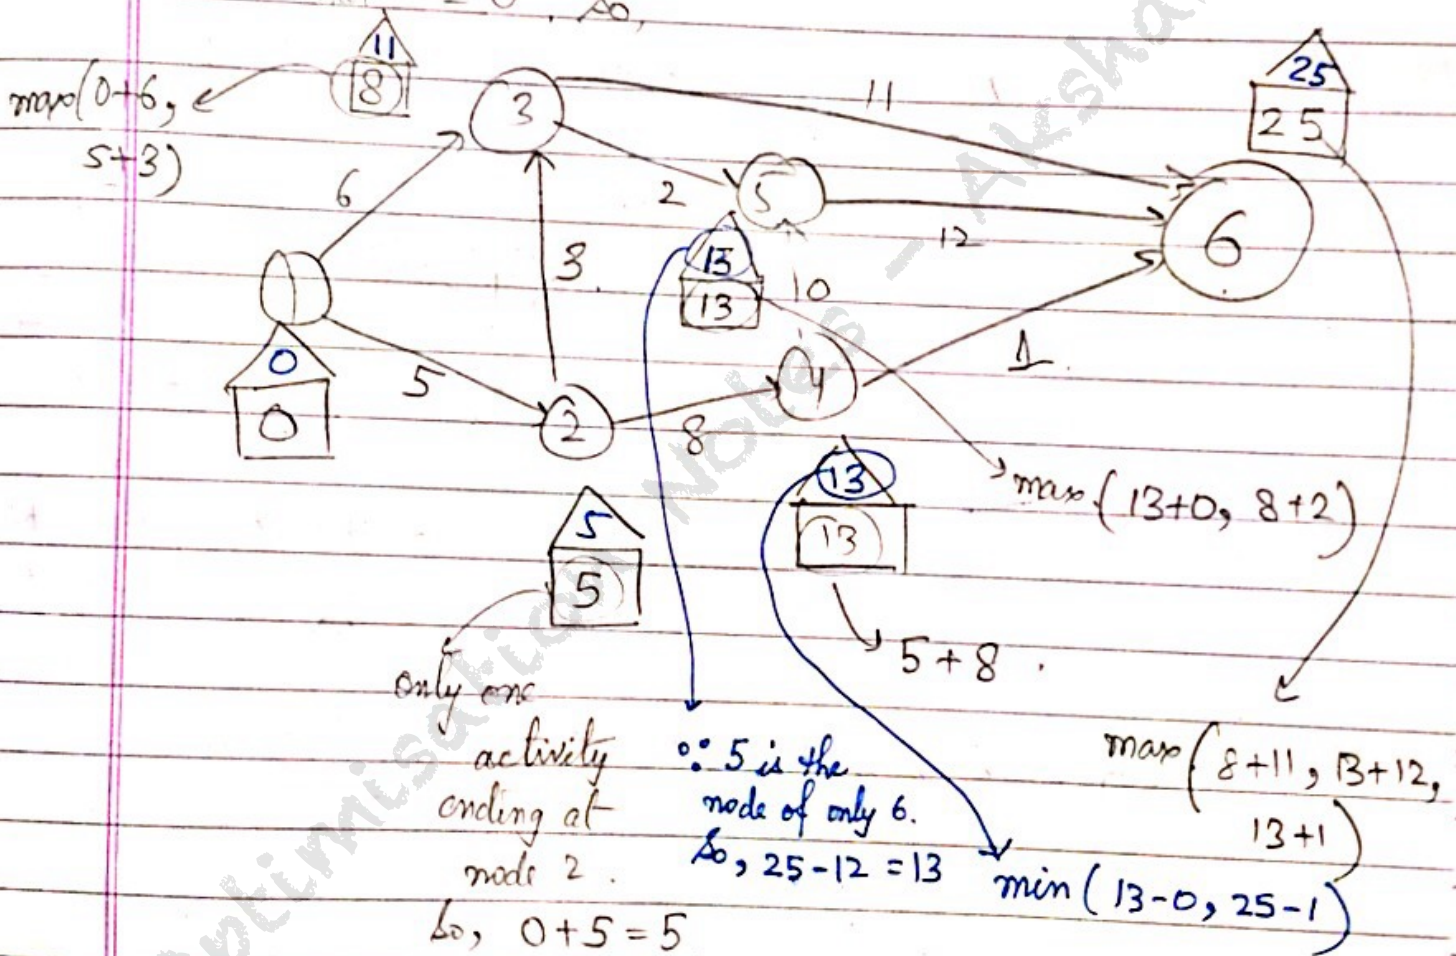 So,
11
8
max(0+6,
5+3)
3
11
25
25
6
2
5
12
6
3
13
13
10
1
0
0
5
2
8
4
1
13
13
max(13+0, 8+2)
5
5
5+8
only one
activity
ending at
node 2.
So, 0+5=5
∵ 5 is the
node of only 6.
So, 25-12=13
min(13-0, 25-1)
max(8+11, 13+12,
13+1)
Optimisation Notes - Aksha